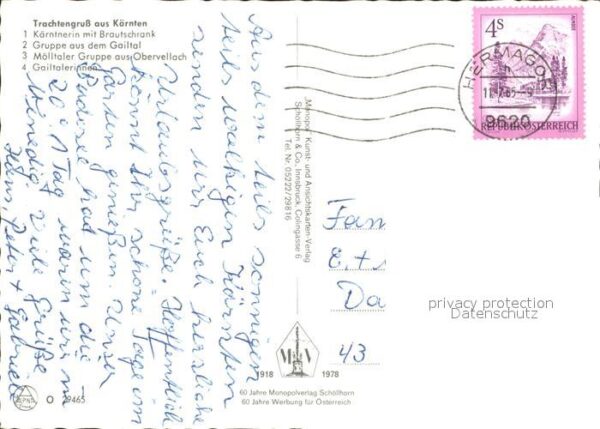 Trachtengruß aus Kärnten
1 Kärntnerin mit Brautschrank
2 Gruppe aus dem Gailtal
3 Mölltaler Gruppe aus Obervellach
4 Gailtalerinnen
Aus dem teils sonnigen
teils wolkigen Kärnten
senden wir Euch herzliche
Urlaubsgrüße. Hoffentlich
könnt Ihr schöne Tage im
Garten genießen. Unser
hat um die
20° 1 Tag waren wir in
Venedig Viele Grüße
Hans, Peter + Gabriele
Monopol Kunst- und Ansichtskarten-Verlag
Schöllhorn & Co., Innsbruck, Colingasse 6
Tel. Nr. 05222/29816
4 S
REPUBLIK ÖSTERREICH
HERMAGOR
9620
Fam
E. + S
Da
43
privacy protection
Datenschutz
1918 1978
60 Jahre Monopolverlag Schöllhorn
60 Jahre Werbung für Österreich
O 9465